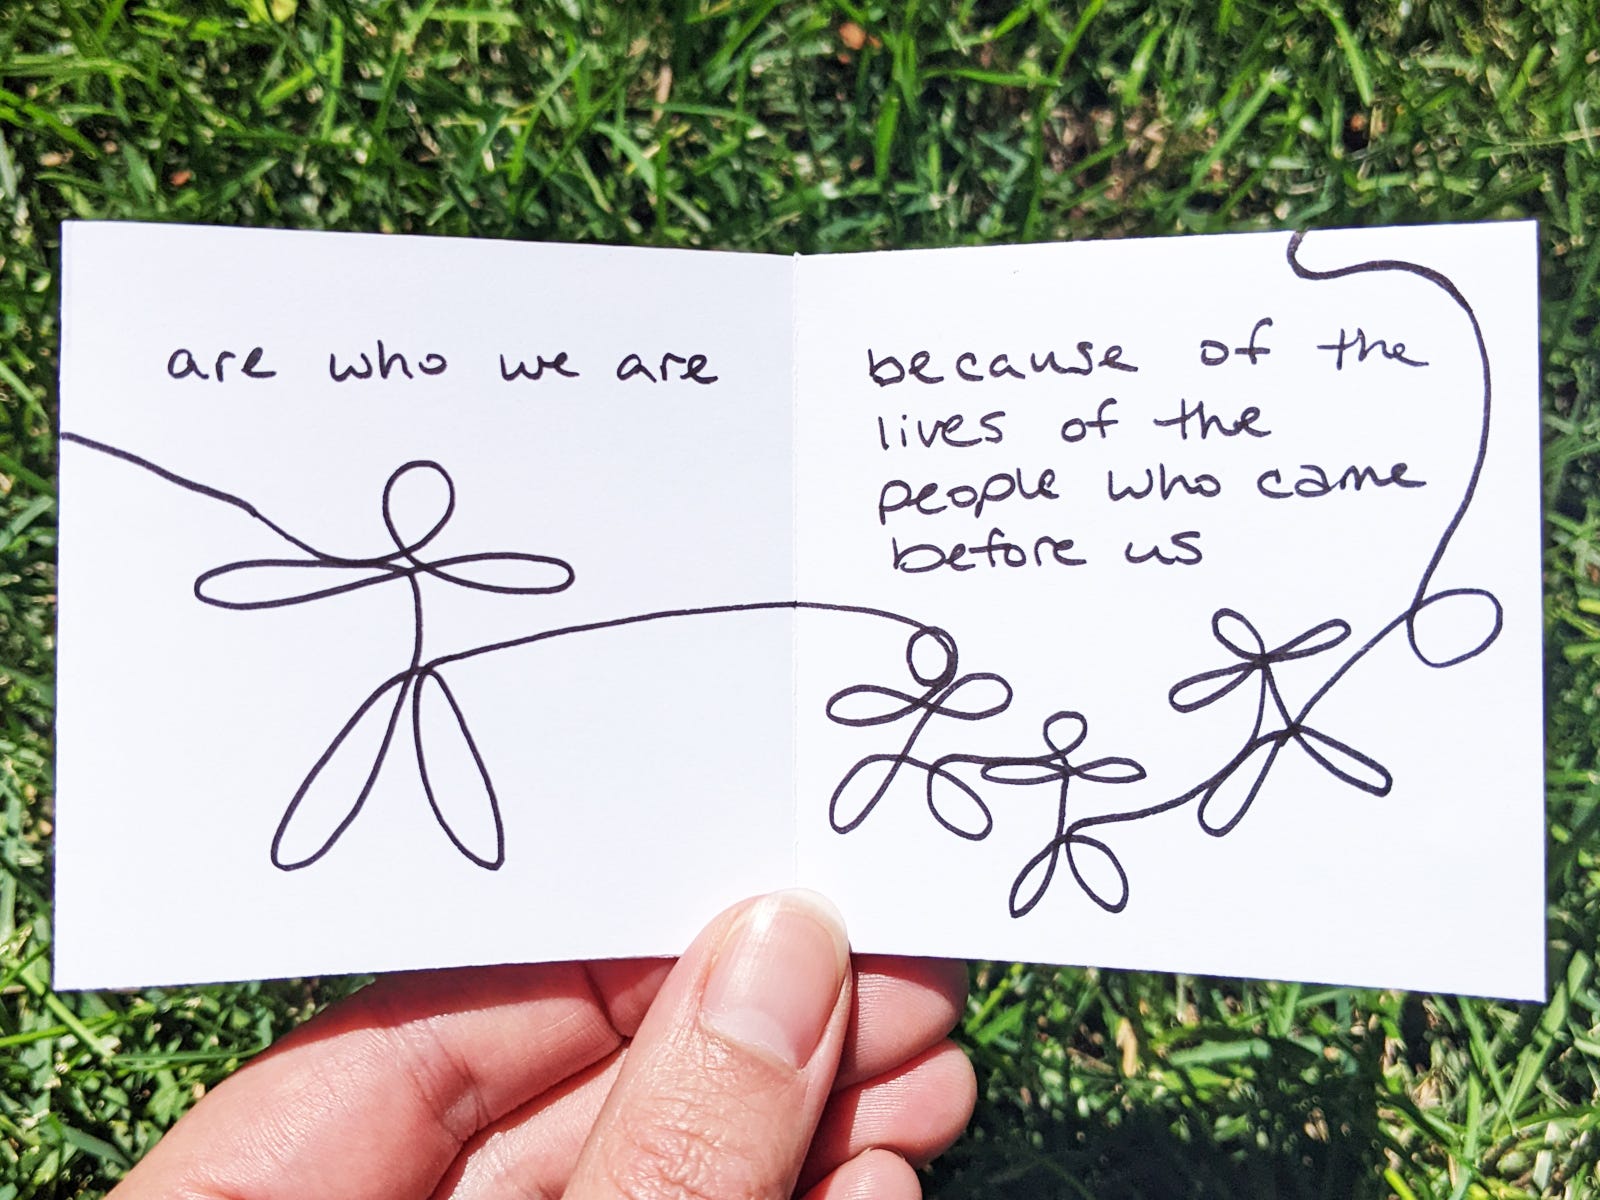 are who we are
because of the
lives of the
people who came
before us